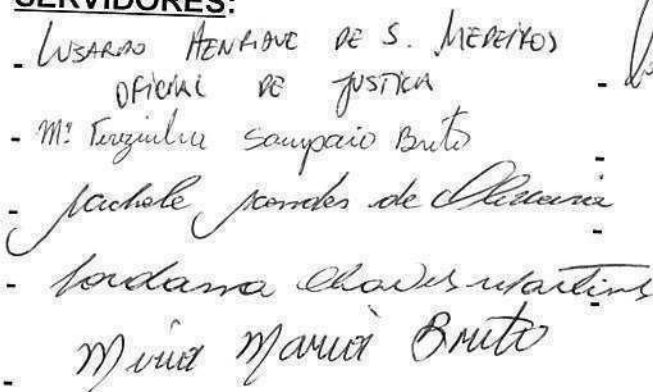 SERVIDORES:
- LUSARDO HENRIQUE DE S. MEDEIROS
OFICIAL DE JUSTIÇA
- Mª Terezinha Sampaio Brito
- Mendes de Oliveira
- Jordanna Chaves Martins
- Maria Brito